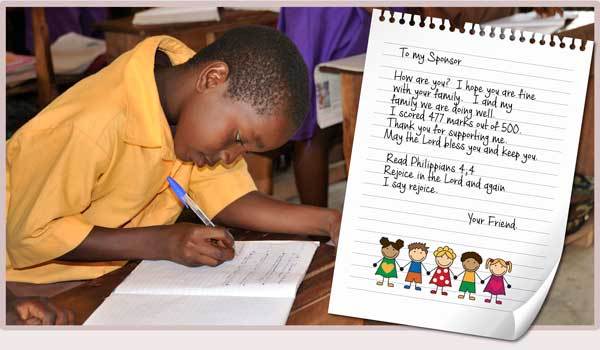 To my Sponsor
How are you? I hope you are fine
with your family. I and my
family we are doing well.
I scored 477 marks out of 500.
Thank you for supporting me.
May the Lord bless you and keep you.
Read Philippians 4,4
Rejoice in the Lord and again
I say rejoice.
Your Friend